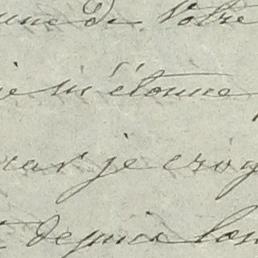 une de votre
je m'étonne
car je croy
depuis lon